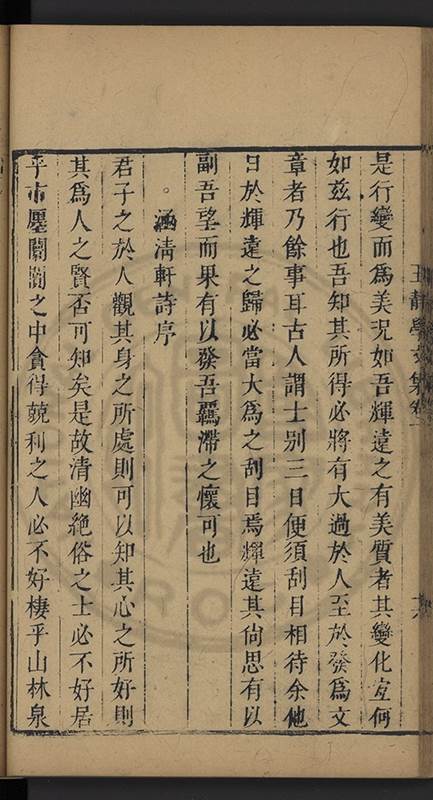 王靜學文集卷一
十六
是行變而爲美況如吾輝遠之有美質者其變化宜何
如兹行也吾知其所得必將有大過於人至於發爲文
章者乃餘事耳古人謂士別三日便須刮目相待余他
日於輝遠之歸必當大爲之刮目焉輝遠其尙思有以
副吾望而果有以發吾羈滯之懷可也
。涵淸軒詩序
君子之於人觀其身之所處則可以知其心之所好則
其爲人之賢否可知矣是故清幽絶俗之士必不好居
乎市廛闤闠之中貪得競利之人必不好棲乎山林泉